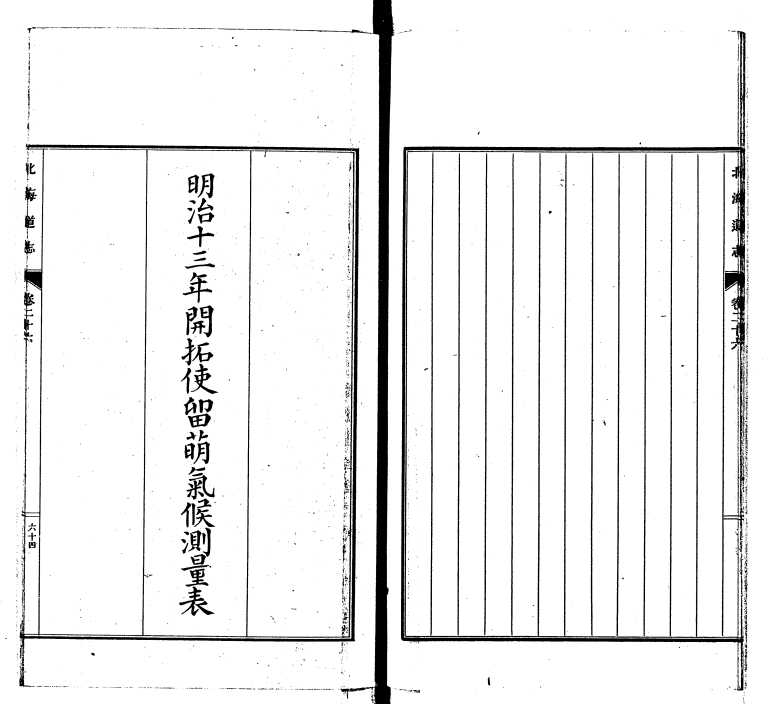 北海道志
卷二十六
明治十三年開拓使留萌氣候測量表
北海道志
卷二十六
六十四